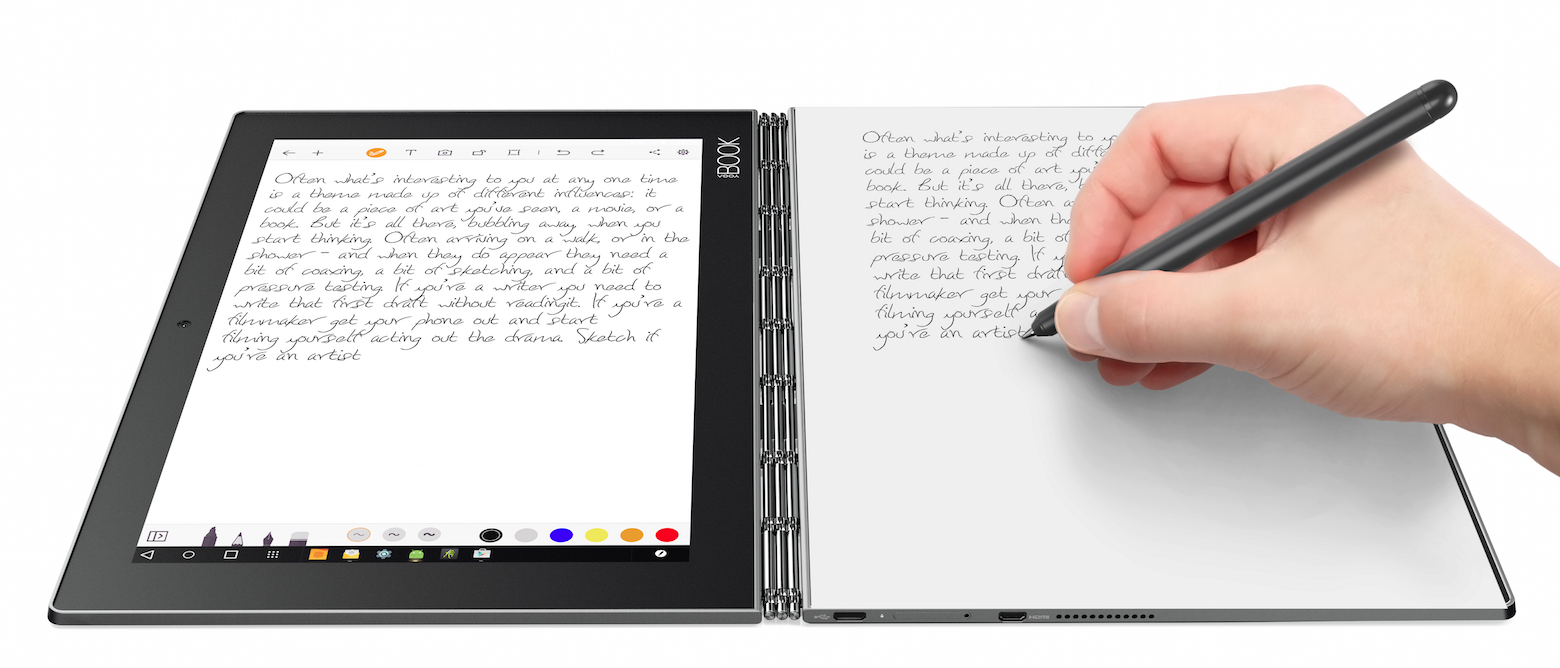 YOGA BOOK
Often what's interesting to you at any one time
is a theme made up of different influences: it
could be a piece of art you've seen, a movie, or a
book. But it's all there, bubbling away, when you
start thinking. Often arriving on a walk, or in the
shower - and when they do appear they need a
bit of coaxing, a bit of sketching, and a bit of
pressure testing. If you're a writer you need to
write that first draft without readingit. If you're a
filmmaker get your phone out and start
filming yourself acting out the drama. Sketch if
you're an artist
Often what's interesting to yo
is a theme made up of diffe
could be a piece of art you'
book. But it's all there, b
start thinking. Often a
shower - and when the
bit of coaxing, a bit of
pressure testing. If y
write that first draft
filmmaker get your
filming yourself a
you're an artist
HDMI